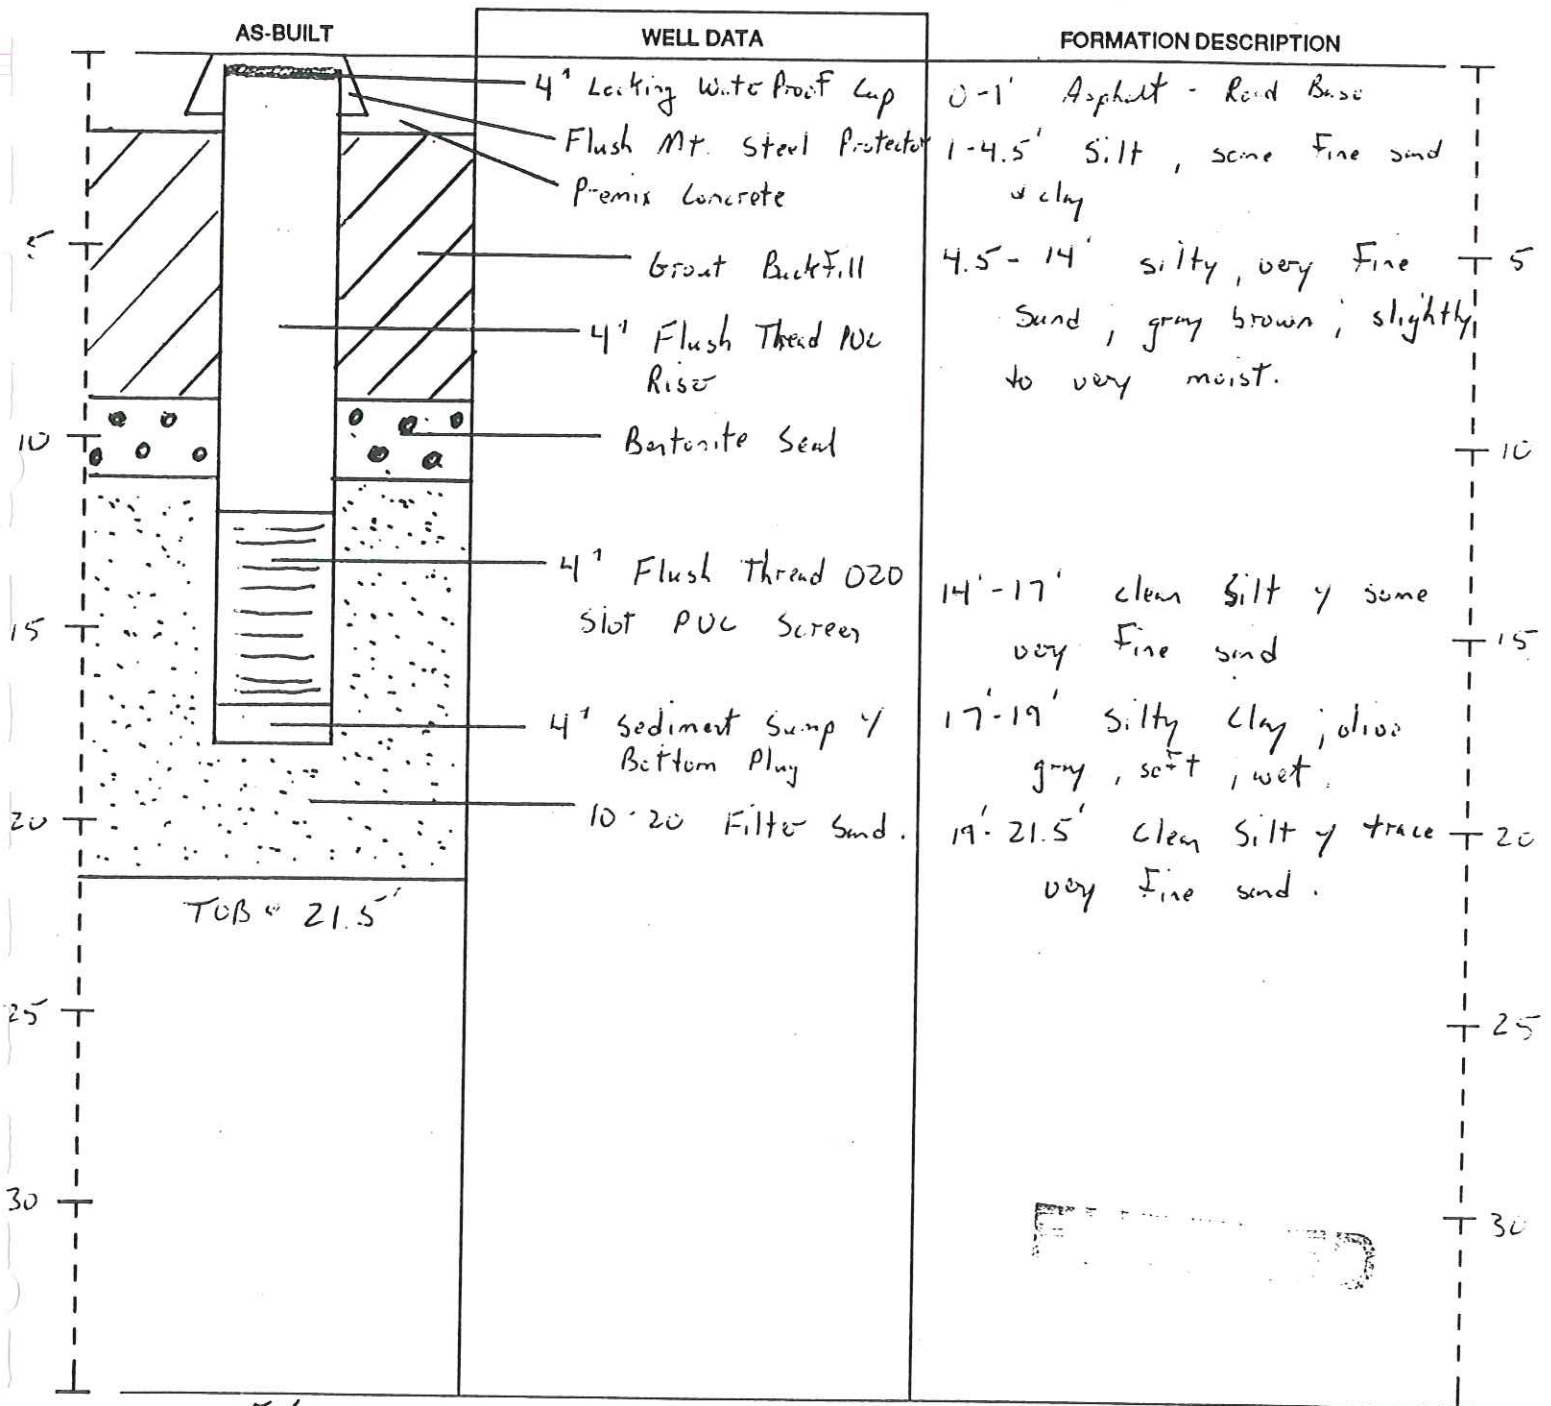 AS-BUILT
WELL DATA
FORMATION DESCRIPTION
4" Locking Water Proof Cap
Flush Mt. Steel Protector
Premix Concrete
Grout Backfill
4" Flush Thead PVC
Riser
Bentonite Seal
4" Flush Thread 020
Slot PVC Screen
4" Sediment Sump w/
Bottom Plug
10-20 Filter Sand.
0-1' Asphalt - Road Base
1-4.5' Silt, some Fine sand
& clay
4.5-14' silty, very Fine
Sand; gray brown; slightly
to very moist.
14'-17' clean Silt w/ some
very Fine sand
17'-19' Silty Clay; olive
gray, soft, wet.
19'-21.5' Clean Silt w/ trace
very Fine sand.
5
10
15
20
25
30
TOB @ 21.5'
5
10
15
20
25
30